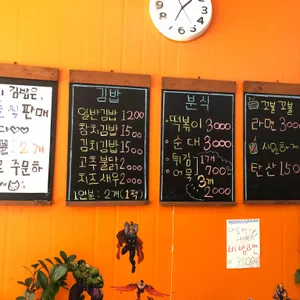 김밥은
판매
2개
주문하
김밥
일반김밥 1200
참치김밥 1500
김치김밥 1500
고추불닭 2000
치즈새우 2000
1인분: 2개(1줄)
분식
떡볶이 3000
순대 3000
튀김 1개 700
어묵 3개 2000
꼬불꼬불
라면 3000
시원하게
탄산 150
비빔라면
3500